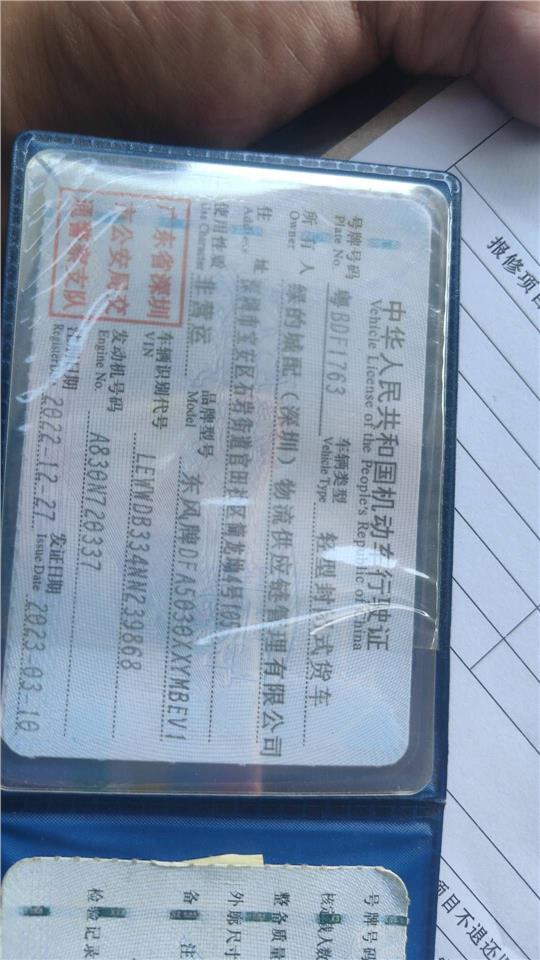 中华人民共和国机动车行驶证
Vehicle License of the People's Republic of China
号牌号码 粤BDF1763 车辆类型 轻型封闭式货车
Plate No. Vehicle Type
所有人 绿的城配（深圳）物流供应链管理有限公司
Owner
住 址 深圳市宝安区石岩街道官田社区
Address
使用性质 非营运 品牌型号 东风牌DFA5030XXYMBEV1
Use Character Model
广东省深圳
市公安局交
通警察支队
车辆识别代号 LEWWDB334NN239868
VIN
发动机号码 A830N720337
Engine No.
注册日期 2022-12-27 发证日期 2023-03-10
Register Date Issue Date
号牌号码
核定载人数
整备质量
外廓尺寸
备 注
检验记录
报修项目
项目不退还